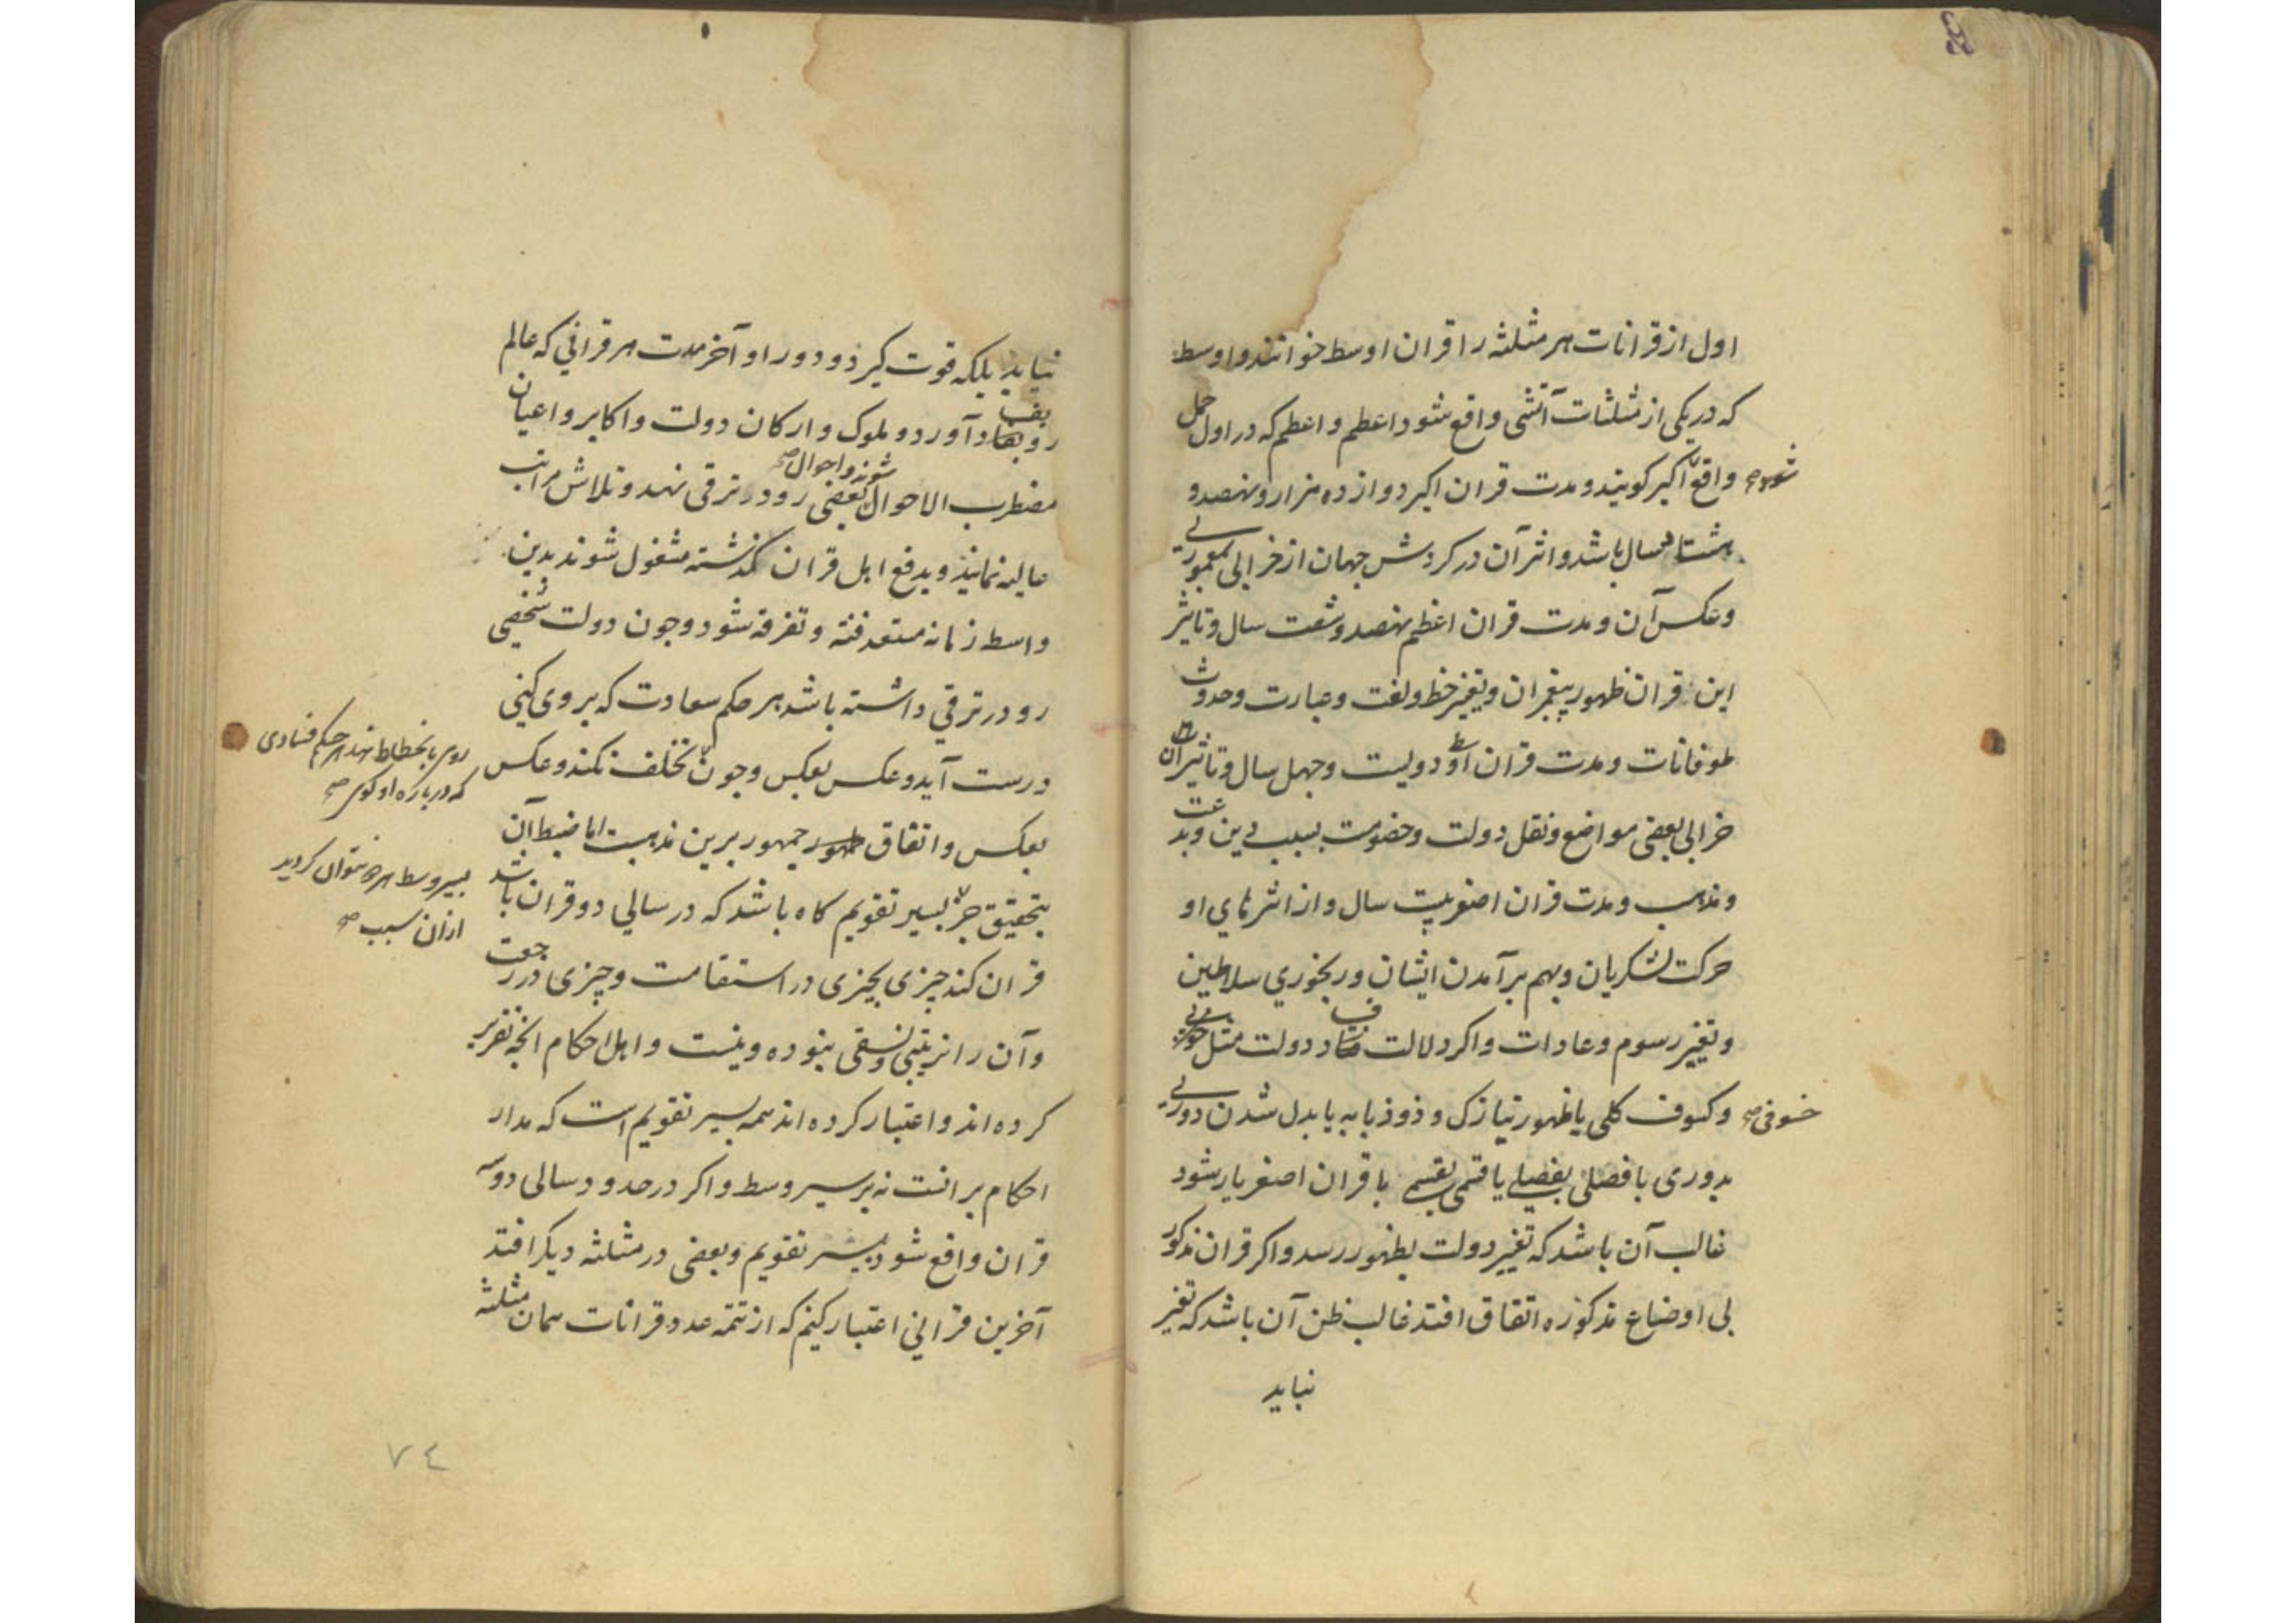 اول از قرانات هر مثلثه را قران اوسط خوانند و اوسط
که در یکی از مثلثات آتشی واقع شود اعظم و اعظم که در اول حمل
واقع شود صح اکبر کویند و مدت قران اکبر دوازده هزار و نهصد و
هشتاد سال باشد و اثر آن در کردش جهان از خرابی بمعموری
و عکس آن و مدت قران اعظم نهصد و شصت سال و تاثیر
این قران ظهور پیغمبران و تغییر خط و لغت و عبارت و حدوث
طوفانات و مدت قران اوسط دویست و چهل سال و تاثیر آن
خرابی بعضی مواضع و نقل دولت و خصومت بسبب دین و بدعت
و مذهب و مدت قران اصغر بیست سال و از اثرهای او
حرکت لشکریان و بهم برآمدن ایشان و رنجوری سلاطین
و تغییر رسوم و عادات و اکر دلالت فساد دولت مثل
خسوفی صح و کسوف کلی یا ظهور نیازک و ذوذبابه یا بدل شدن دوری
بدوری یا فصلی بفصلی یا قسمی بقسمی با قران اصغر یار شود
غالب آن باشد که تغییر دولت بظهور رسد و اکر قران مذکور
بی اوضاع مذکوره اتفاق افتد غالب ظن آن باشد که تغیر
نیابد
نیابد بلکه قوت کیرد و دور او آخر مدت هر قرانی که عالم
رو بفساد آورد و ملوک و ارکان دولت و اکابر و اعیان
مضطرب الاحوال شوند و احوال صح بعضی رو در ترقی نهد و تلاش مراتب
عالیه نمایند و بدفع اهل قران کذشته مشغول شوند بدین
واسط زمانه مستعد فتنه و تفرقه شود و چون دولت شخصی
رو در ترقی داشته باشد هر حکم سعادت که بر وی کنی
درست آید و عکس بعکس و چون تخلف نکند و عکس
روی بانحطاط نهد هر حکم فسادی
که درباره او کوی صح
بعکس و اتفاق جمهور برین مذهبست اما ضبط آن
بسیر وسط هر جا نتوان کردید
ازان سبب صح
بتحقیق جز بسیر تقویم کاه باشد که در سالی دو قران باشد
قران کند چیزی بچیزی در استقامت و چیزی در رجعت
و آن را ترتیبی و نسقی نبوده و نیست و اهل احکام آنچه تقریر
کرده اند و اعتبار کرده اند همه بسیر تقویم است که مدار
احکام برانست نه بر سیر وسط و اکر در حدود سالی دو سه
قران واقع شود بسیر تقویم و بعضی در مثلثه دیکر افتد
آخرین قرانی اعتبار کنیم که از تتمه عدد قرانات همان مثلثه
٧٤